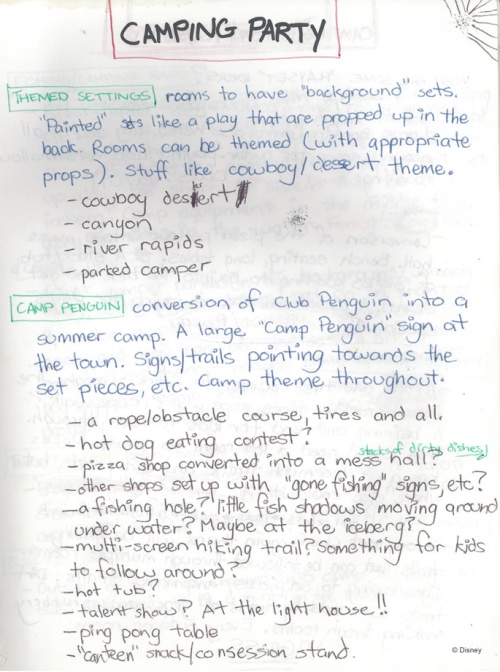 CAMPING PARTY
THEMED SETTINGS rooms to have "background" sets.
"Painted" sets like a play that are propped up in the
back. Rooms can be themed (with appropriate
props). Stuff like cowboy/desert theme.
- cowboy desert
- canyon
- river rapids
- parked camper
CAMP PENGUIN conversion of Club Penguin into a
summer camp. A large "Camp Penguin" sign at
the town. Signs/trails pointing towards the
set pieces, etc. Camp theme throughout.
- a rope/obstacle course, tires and all.
- hot dog eating contest?
stacks of dirty dishes!
- pizza shop converted into a mess hall?
- other shops set up with "gone fishing" signs, etc?
- a fishing hole? little fish shadows moving around
under water? Maybe at the iceberg?
- multi-screen hiking trail? Something for kids
to follow around?
- hot tub?
- talent show? At the light house!!
- ping pong table
- "canteen" snack/consession stand.
© Disney